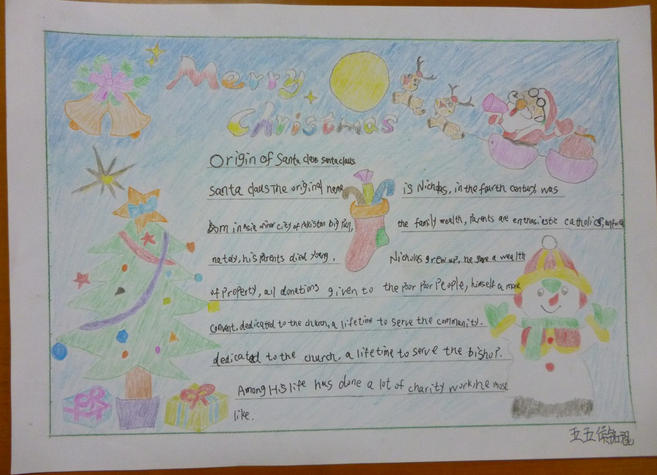 Merry
Christmas
Origin of Santa claus santa claus
Santa claus The original name is Nicholas, in the fourth century was
Born in Asia minor city of the family wealth, parents are enthusiastic catholics, unfortu
nately, his parents died young. Nicholas grew up, he gave a wealth
of property, all donations given to the poor poor people, himself a monk
convent, dedicated to the church, a lifetime to serve the community.
dedicated to the church, a lifetime to serve the bishop.
Among His life has done a lot of charity work he most
like.
五五